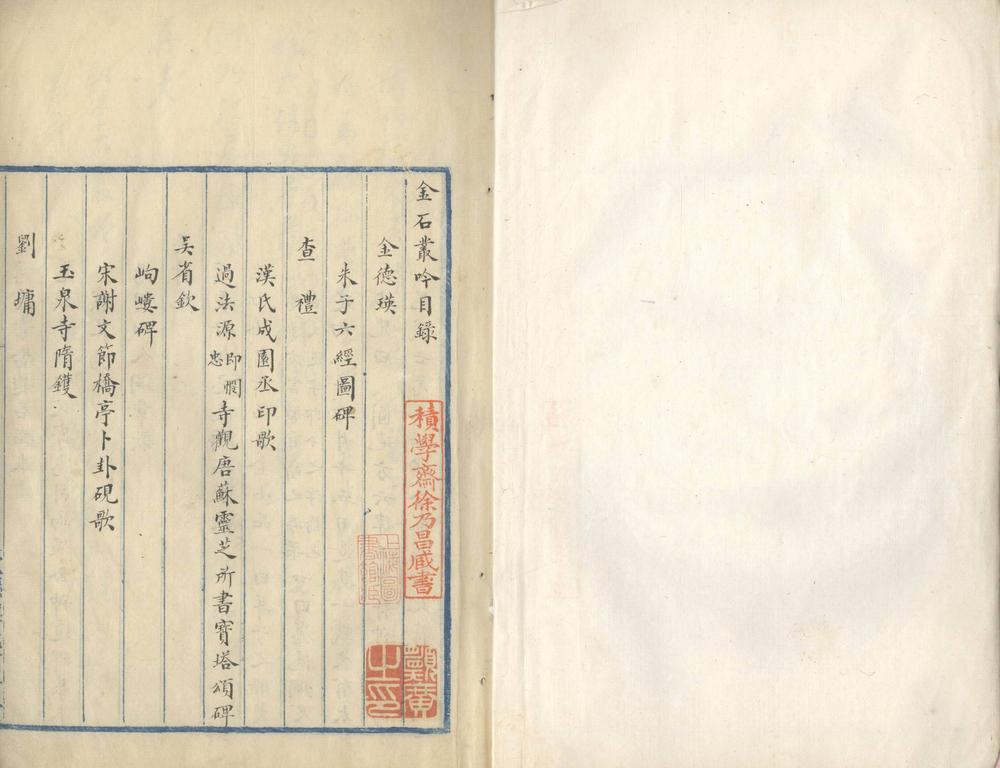 金石叢吟目錄
金德瑛
朱子六經圖碑
查禮
漢氏成園丞印歌
過法源即憫忠寺觀唐蘇靈芝所書寶塔頌碑
吳省欽
岣嶁碑
宋謝文節橋亭卜卦硯歌
玉泉寺隋鑊
劉墉
積學齋徐乃昌藏書
上海圖書館藏
之印